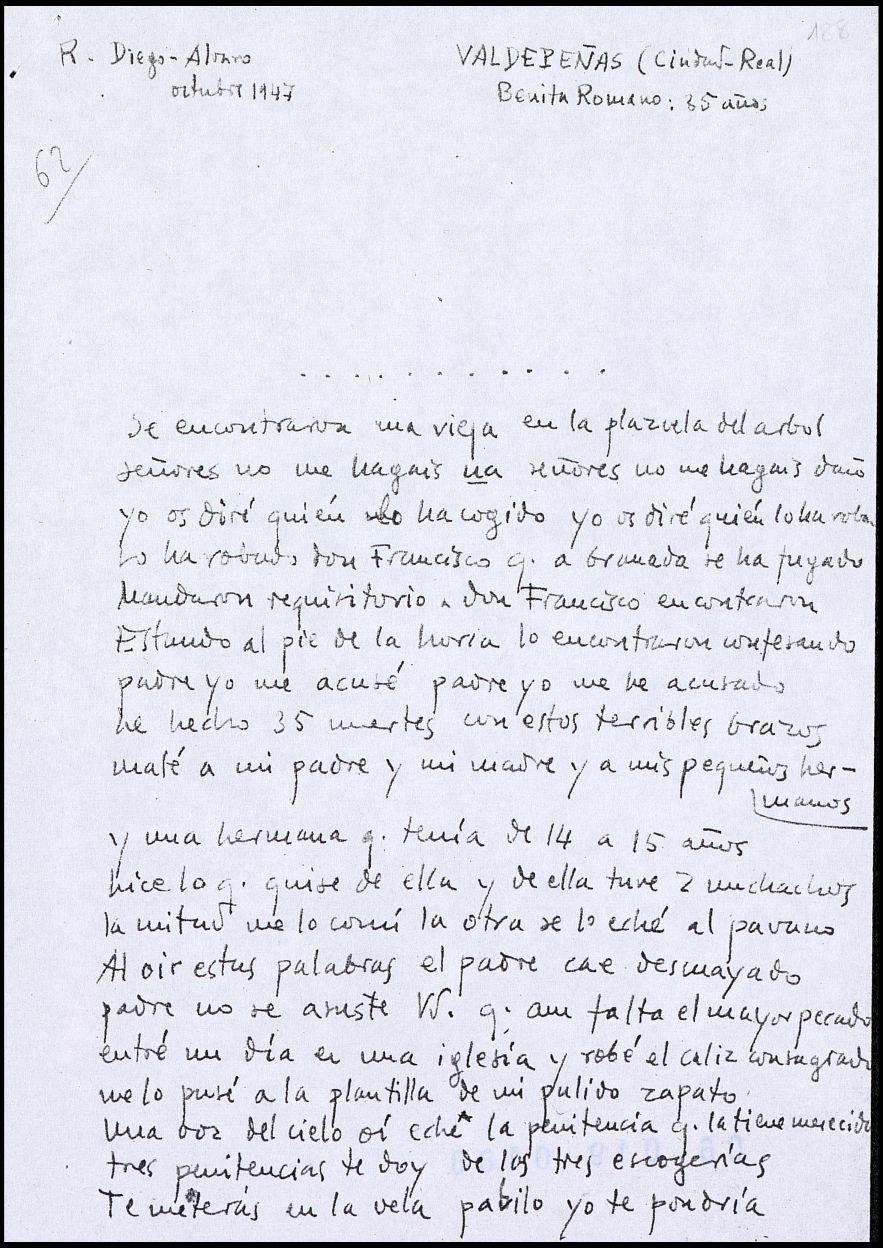 188
R. Diego-Alvaro
octubre 1947
VALDEPEÑAS (Ciudad-Real)
Benita Romano: 35 años
62
. . . . . . . . . . . .
Se encontraron una vieja en la plazuela del arbol
señores no me hagais na señores no me hagais daño
yo os diré quién lo ha cogido yo os diré quién lo ha roba
Lo ha robado don Francisco q. a Granada se ha fugado
Mandaron requisitorio a don Francisco encontraron
Estando al pie de la horca lo encontraron confesando
padre yo me acusé padre yo me he acusado
he hecho 35 muertes con estos terribles brazos
maté a mi padre y mi madre y a mis pequeños her-
manos
y una hermana q. tenía de 14 a 15 años
hice lo q. quise de ella y de ella tuve 2 muchachos
la mitad me lo comí la otra se lo eché al pavano
Al oir estas palabras el padre cae desmayado
padre no se asuste Vd. q. aun falta el mayor pecado
entré un día en una iglesia y robé el caliz consagrado
me lo pusé a la plantilla de mi pulido zapato
Una voz del cielo oí eché la penitencia q. la tiene merecida
tres penitencias te doy de las tres escogerías
Te meterás en la vela pabilo yo te pondría